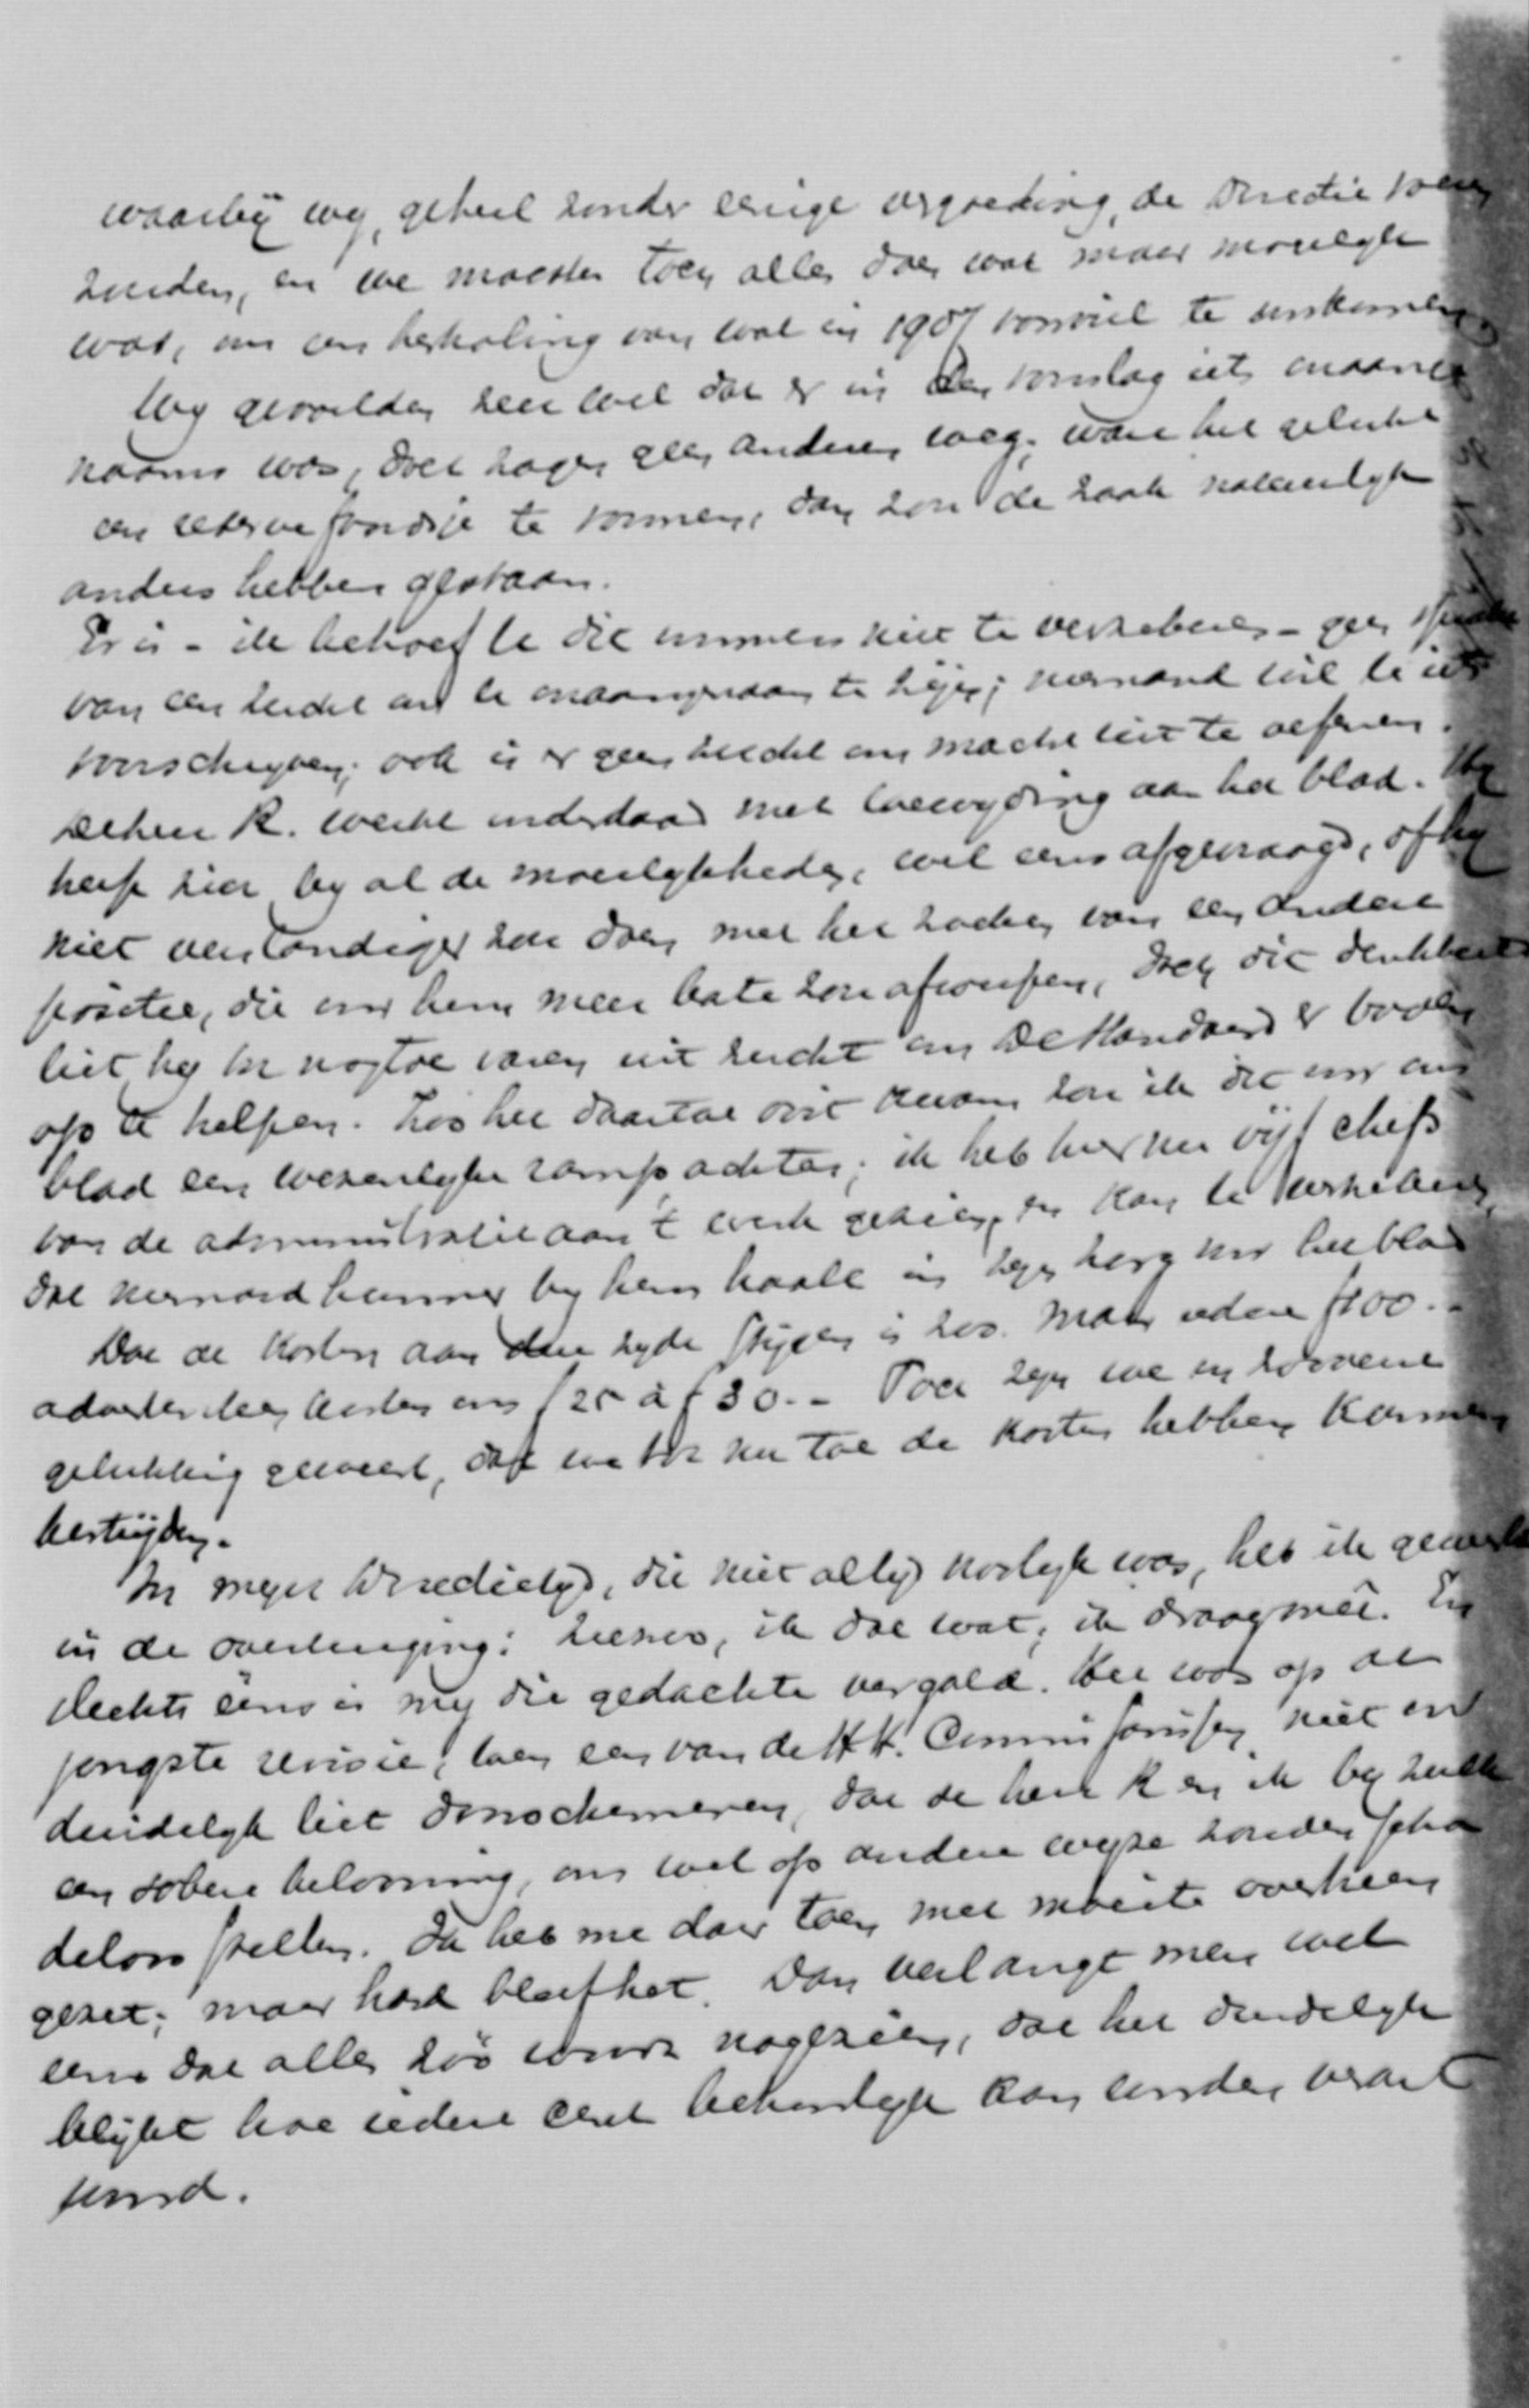 waarbij wij, geheel zonder eenige vergoeding, de Directie
zouden, en we moesten toen alles doen wat maar mogelyk
was, om een herhaling van wat in 1907 voorviel te voorkomen
Wy gevoelden zeer wel dat er in den voorslag iets onaange
naams was, doch zagen geen anderen weg. Ware het gelukt
een reservefondsje te vormen, dan zou de zaak natuurlyk
anders hebben gestaan.
Er is - ik behoef U dit immers niet te verzekeren - geen
van een zucht om U onaangenaam te zijn; niemand wil U iets
voorschryven; ook is er geen zucht om macht uit te oefenen.
De heer K. werkt inderdaad met toewyding aan het blad. Hy
heeft zich by al de moeilykheden, wel eens afgevraagd, of hy
niet verstandiger zou doen met het zoeken van een andere
positie, die voor hem meer baten zou afwerpen, doch dit denkbeeld
liet hy tot nogtoe varen uit zucht om De Standaard er boven
op te helpen. Zoo het daartoe ooit kwam zou ik dit voor ons
blad een wezenlyke ramp achten; ik heb hier nu vijf chefs
van de administratie aan 't werk gezien, en kan U verzekeren,
dat niemand hunner by hem haalt in zyn zorg voor het blad
Dat de kosten aan die zyde stijgen is zoo. Maar iedere f100.-
advertentien kosten ons f25 à f30.- Toch zyn we in zooverre
gelukkig geweest, dat we tot nu toe de kosten hebben kunnen
bestrijden.
In myn Directietyd, die niet altyd rooslyk was, heb ik gewerkt
in de overtuiging: zienso, ik doe wat, ik draag mee. En
slechts eens is my die gedachte vergald. Het was op de
jongste revisie, toen een van de HH. Commissarissen niet on
duidelyk liet doorschemeren, dat de heer K en ik by zulk
een sobere belooning, ons wel op andere wyze zouden scha
deloos stellen. Ik heb me daar toen met moeite overheen
gezet; maar hard bleef het. Dan verlangt men wel
eens dat alles zóó worde nagezien, dat het duidelyk
blykt hoe iedere cent behoorlyk kan worden verant
woord.